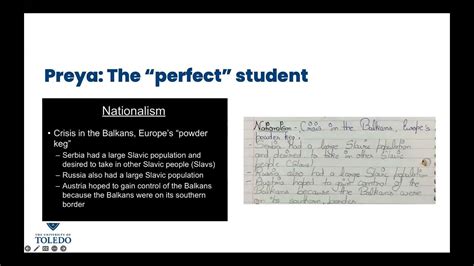 Preya: The “perfect” student
Nationalism
• Crisis in the Balkans, Europe's “powder
keg”
– Serbia had a large Slavic population and
desired to take in other Slavic people (Slavs)
– Russia also had a large Slavic population
– Austria hoped to gain control of the Balkans
because the Balkans were on its southern
border
Nationalism - Crisis in the Balkans, Europe's
powder keg.
had a large Slavic population
and desired to take in other Slavic
people (Slavs)
Russia also had a large Slavic population
Austria hoped to gain control of the
Balkans because the Balkans were
on its southern border
THE UNIVERSITY OF
TOLEDO